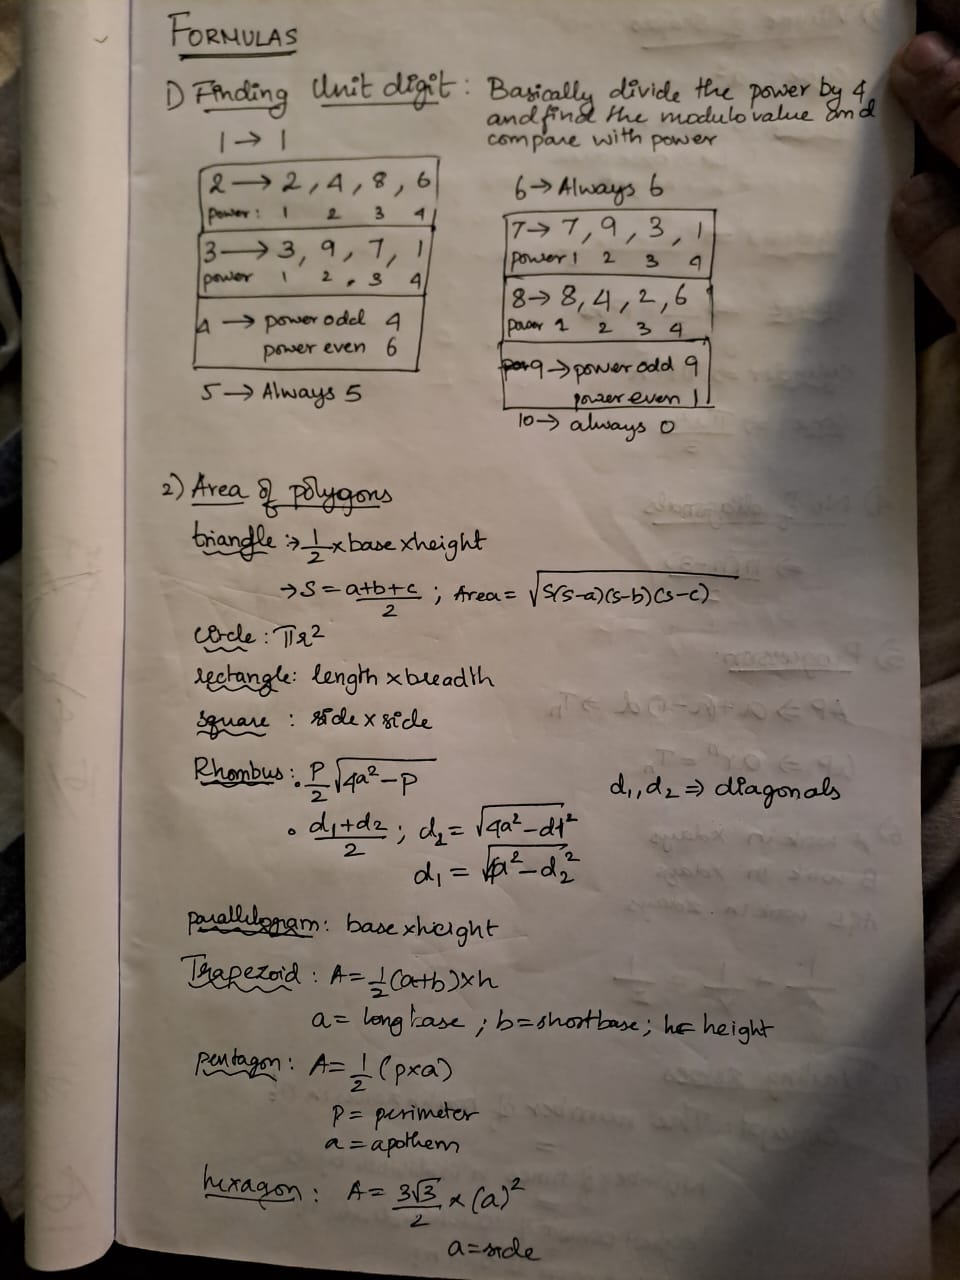 FORMULAS
1) Finding Unit digit: Basically divide the power by 4
and find the modulo value and
compare with power
1 → 1
2 → 2, 4, 8, 6
power: 1 2 3 4
3 → 3, 9, 7, 1
power 1 2 . 3 4
4 → power odd 4
power even 6
5 → Always 5
6 → Always 6
7 → 7, 9, 3, 1
power 1 2 3 4
8 → 8, 4, 2, 6
power 1 2 3 4
9 → power odd 9
power even 1
10 → always 0
2) Area of polygons
triangle :→ 1/2 × base × height
→ S = (a+b+c)/2 ; Area = √(S(S-a)(S-b)(S-c))
circle : πr²
rectangle: length × breadth
square : side × side
Rhombus: . P/2 √(4a²-P)
• (d₁+d₂)/2 ; d₂ = √(4a²-d1²)
d₁ = √(a²-d₂²)
d₁, d₂ ⇒ diagonals
parallelogram: base × height
Trapezoid : A = 1/2 (a+b) × h
a = long base ; b = short base ; h = height
pentagon : A = 1/2 (p×a)
P = perimeter
a = apothem
hexagon : A = 3√3/2 × (a)²
a = side